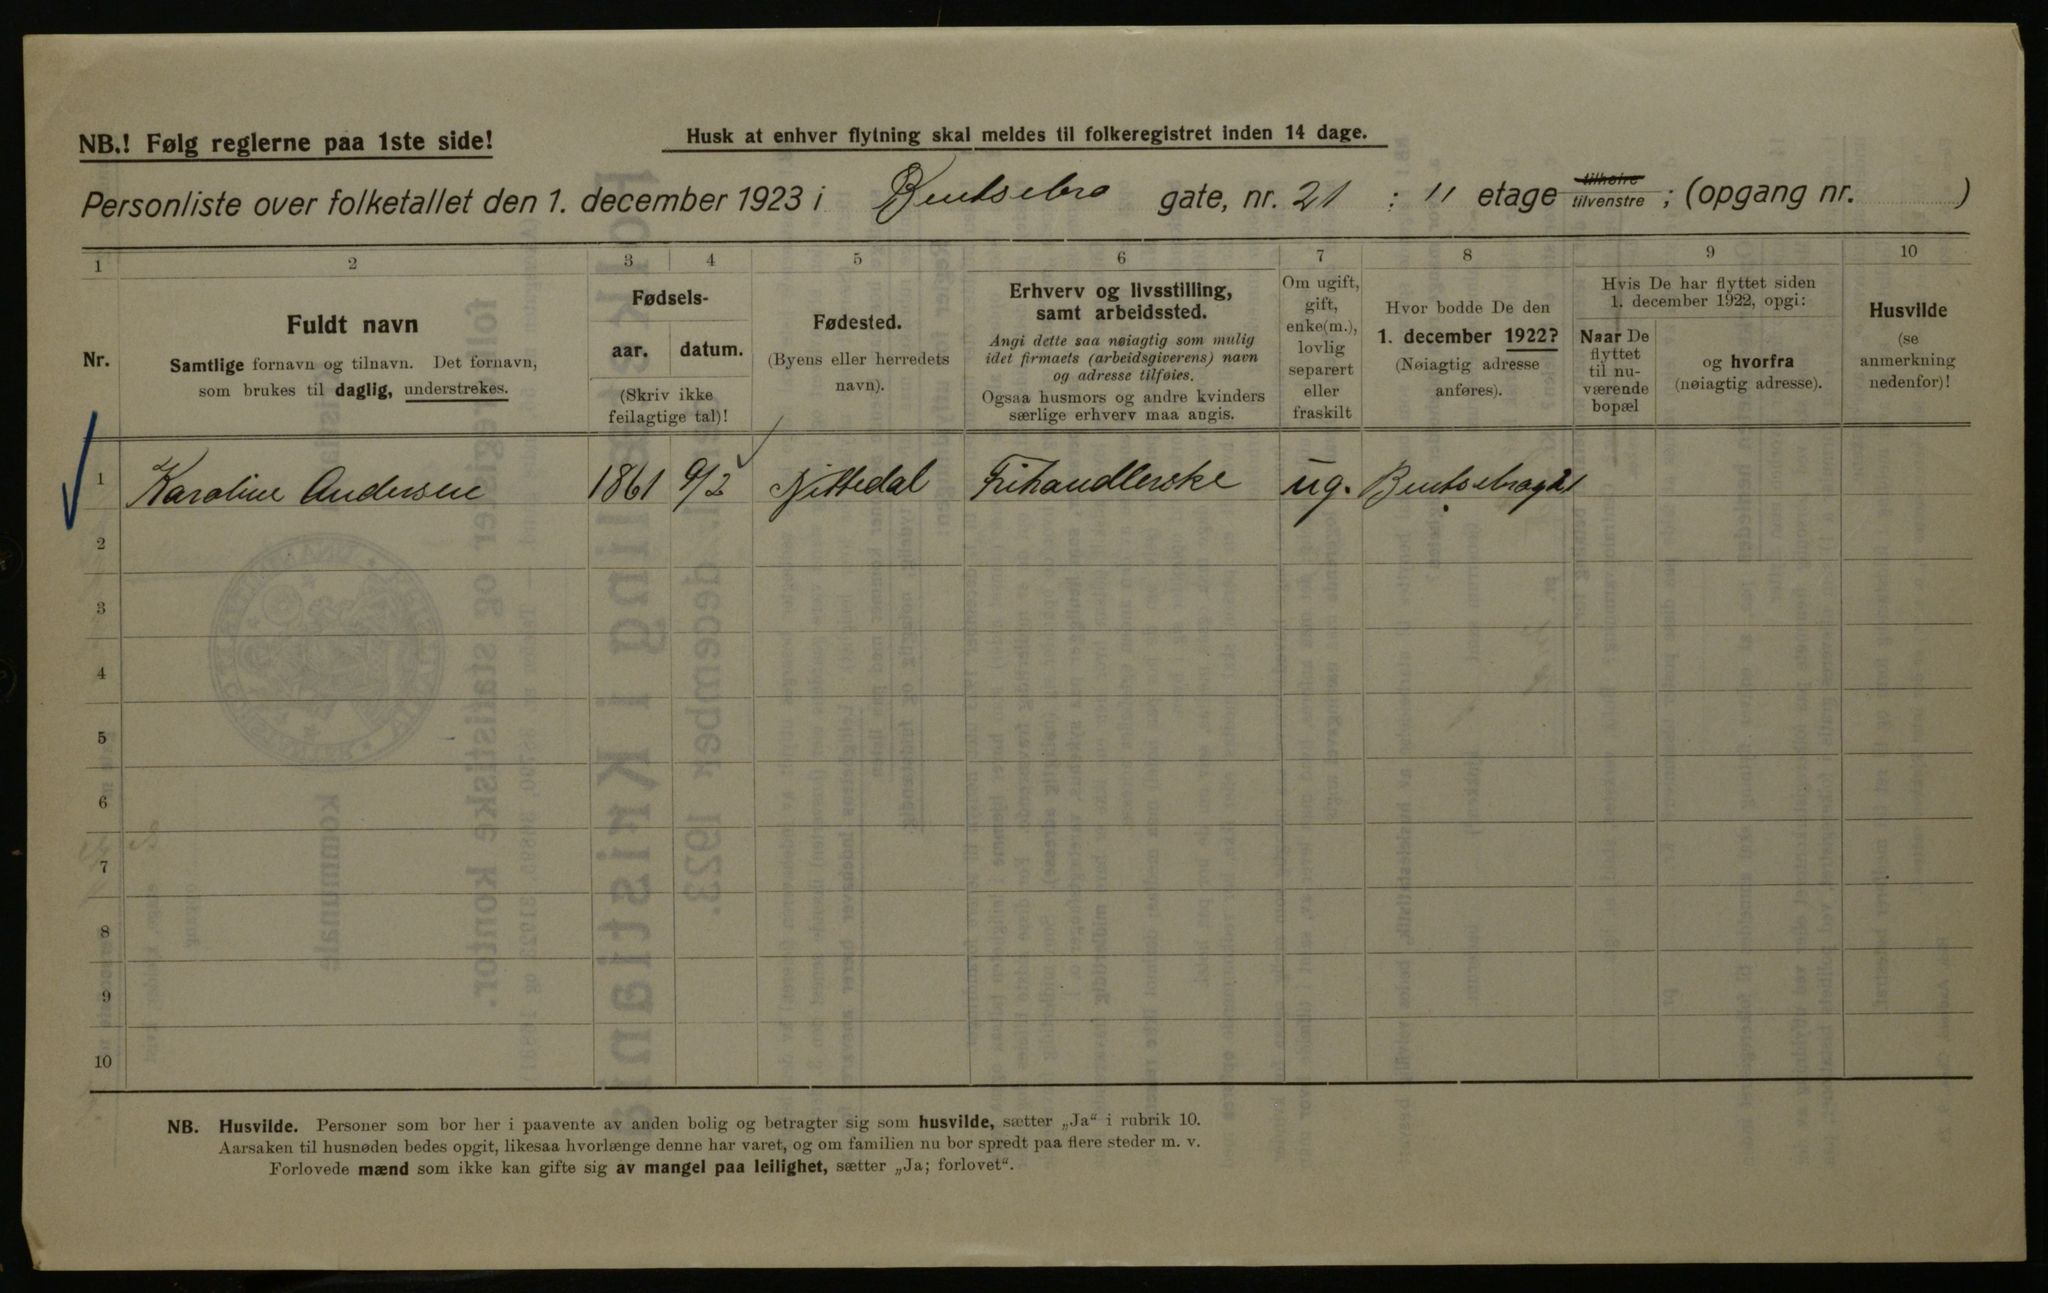 NB.! Følg reglerne paa 1ste side!
Husk at enhver flytning skal meldes til folkeregistret inden 14 dage.
Personliste over folketallet den 1. december 1923 i Bentsebro gate, nr. 21 ; II etage tilhøire tilvenstre ; (opgang nr. )
1 2 3 4 5 6 7 8 9 10
Nr.
Fuldt navn
Samtlige fornavn og tilnavn. Det fornavn,
som brukes til daglig, understrekes.
Fødsels-
aar. datum.
(Skriv ikke
feilagtige tal)!
Fødested.
(Byens eller herredets
navn).
Erhverv og livsstilling,
samt arbeidssted.
Angi dette saa nøiagtig som mulig
idet firmaets (arbeidsgiverens) navn
og adresse tilføies.
Ogsaa husmors og andre kvinders
særlige erhverv maa angis.
Om ugift,
gift,
enke(m.),
lovlig
separert
eller
fraskilt
Hvor bodde De den
1. december 1922?
(Nøiagtig adresse
anføres).
Hvis De har flyttet siden
1. december 1922, opgi:
Naar De
flyttet
til nu-
værende
bopæl
og hvorfra
(nøiagtig adresse).
Husvilde
(se
anmerkning
nedenfor)!
1 Karoline Andersen 1861 9/2 Nittedal Frihandlerske ug. Bentsebrogt 21
2
3
4
5
6
7
8
9
10
NB. Husvilde. Personer som bor her i paavente av anden bolig og betragter sig som husvilde, sætter „Ja“ i rubrik 10.
Aarsaken til husnøden bedes opgit, likesaa hvorlænge denne har varet, og om familien nu bor spredt paa flere steder m. v.
Forlovede mænd som ikke kan gifte sig av mangel paa leilighet, sætter „Ja; forlovet“.